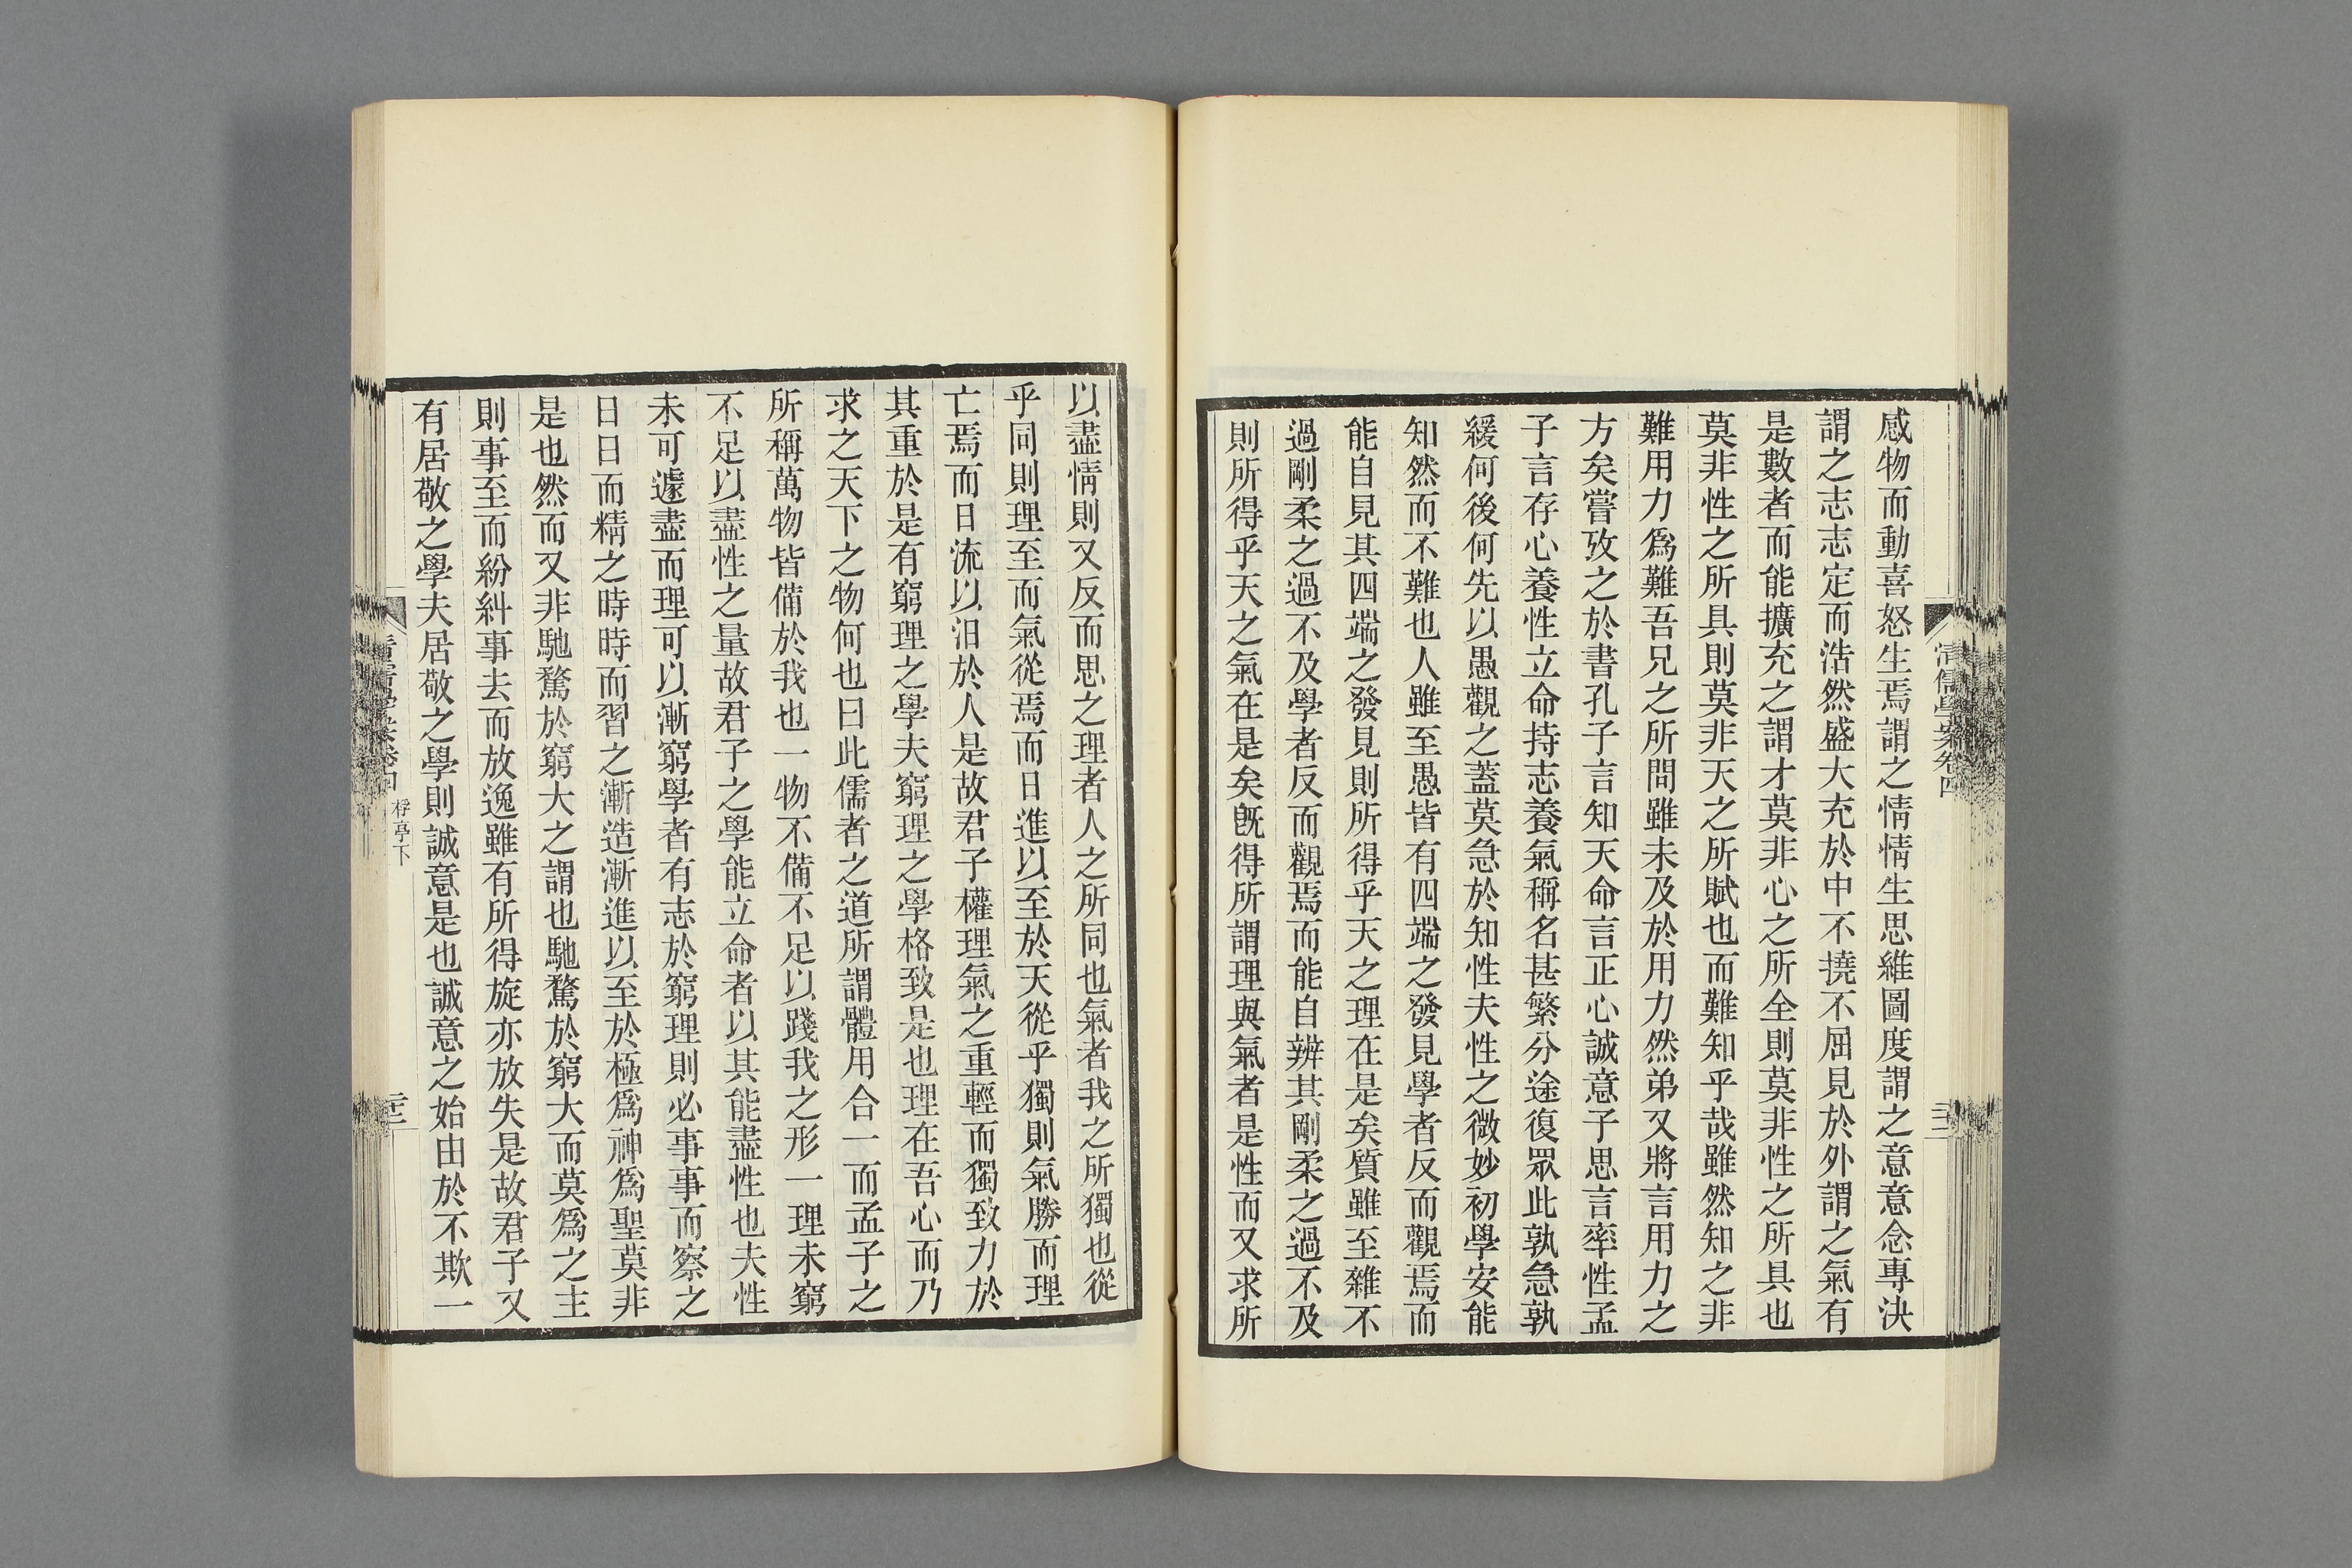 感物而動喜怒生焉謂之情情生思維圖度謂之意意念專決
謂之志志定而浩然盛大充於中不撓不屈見於外謂之氣有
是數者而能擴充之謂才莫非心之所全則莫非性之所具也
莫非性之所具則莫非天之所賦也而難知乎哉雖然知之非
難用力爲難吾兄之所問雖未及於用力然弟又將言用力之
方矣嘗攷之於書孔子言知天命言正心誠意子思言率性孟
子言存心養性立命持志養氣稱名甚繁分途復眾此孰急孰
緩何後何先以愚觀之蓋莫急於知性夫性之微妙初學安能
知然而不難也人雖至愚皆有四端之發見學者反而觀焉而
能自見其四端之發見則所得乎天之理在是矣質雖至雜不
過剛柔之過不及學者反而觀焉而能自辨其剛柔之過不及
則所得乎天之氣在是矣旣得所謂理與氣者是性而又求所
清儒學案卷四
以盡情則又反而思之理者人之所同也氣者我之所獨也從
乎同則理至而氣從焉而日進以至於天從乎獨則氣勝而理
亡焉而日流以汨於人是故君子權理氣之重輕而獨致力於
其重於是有窮理之學夫窮理之學格致是也理在吾心而乃
求之天下之物何也曰此儒者之道所謂體用合一而孟子之
所稱萬物皆備於我也一物不備不足以踐我之形一理未窮
不足以盡性之量故君子之學能立命者以其能盡性也夫性
未可遽盡而理可以漸窮學者有志於窮理則必事事而察之
日日而精之時時而習之漸造漸進以至於極爲神爲聖莫非
是也然而又非馳騖於窮大之謂也馳騖於窮大而莫爲之主
則事至而紛糾事去而放逸雖有所得旋亦放失是故君子又
有居敬之學夫居敬之學則誠意是也誠意之始由於不欺一
清儒學案卷四 桴亭下